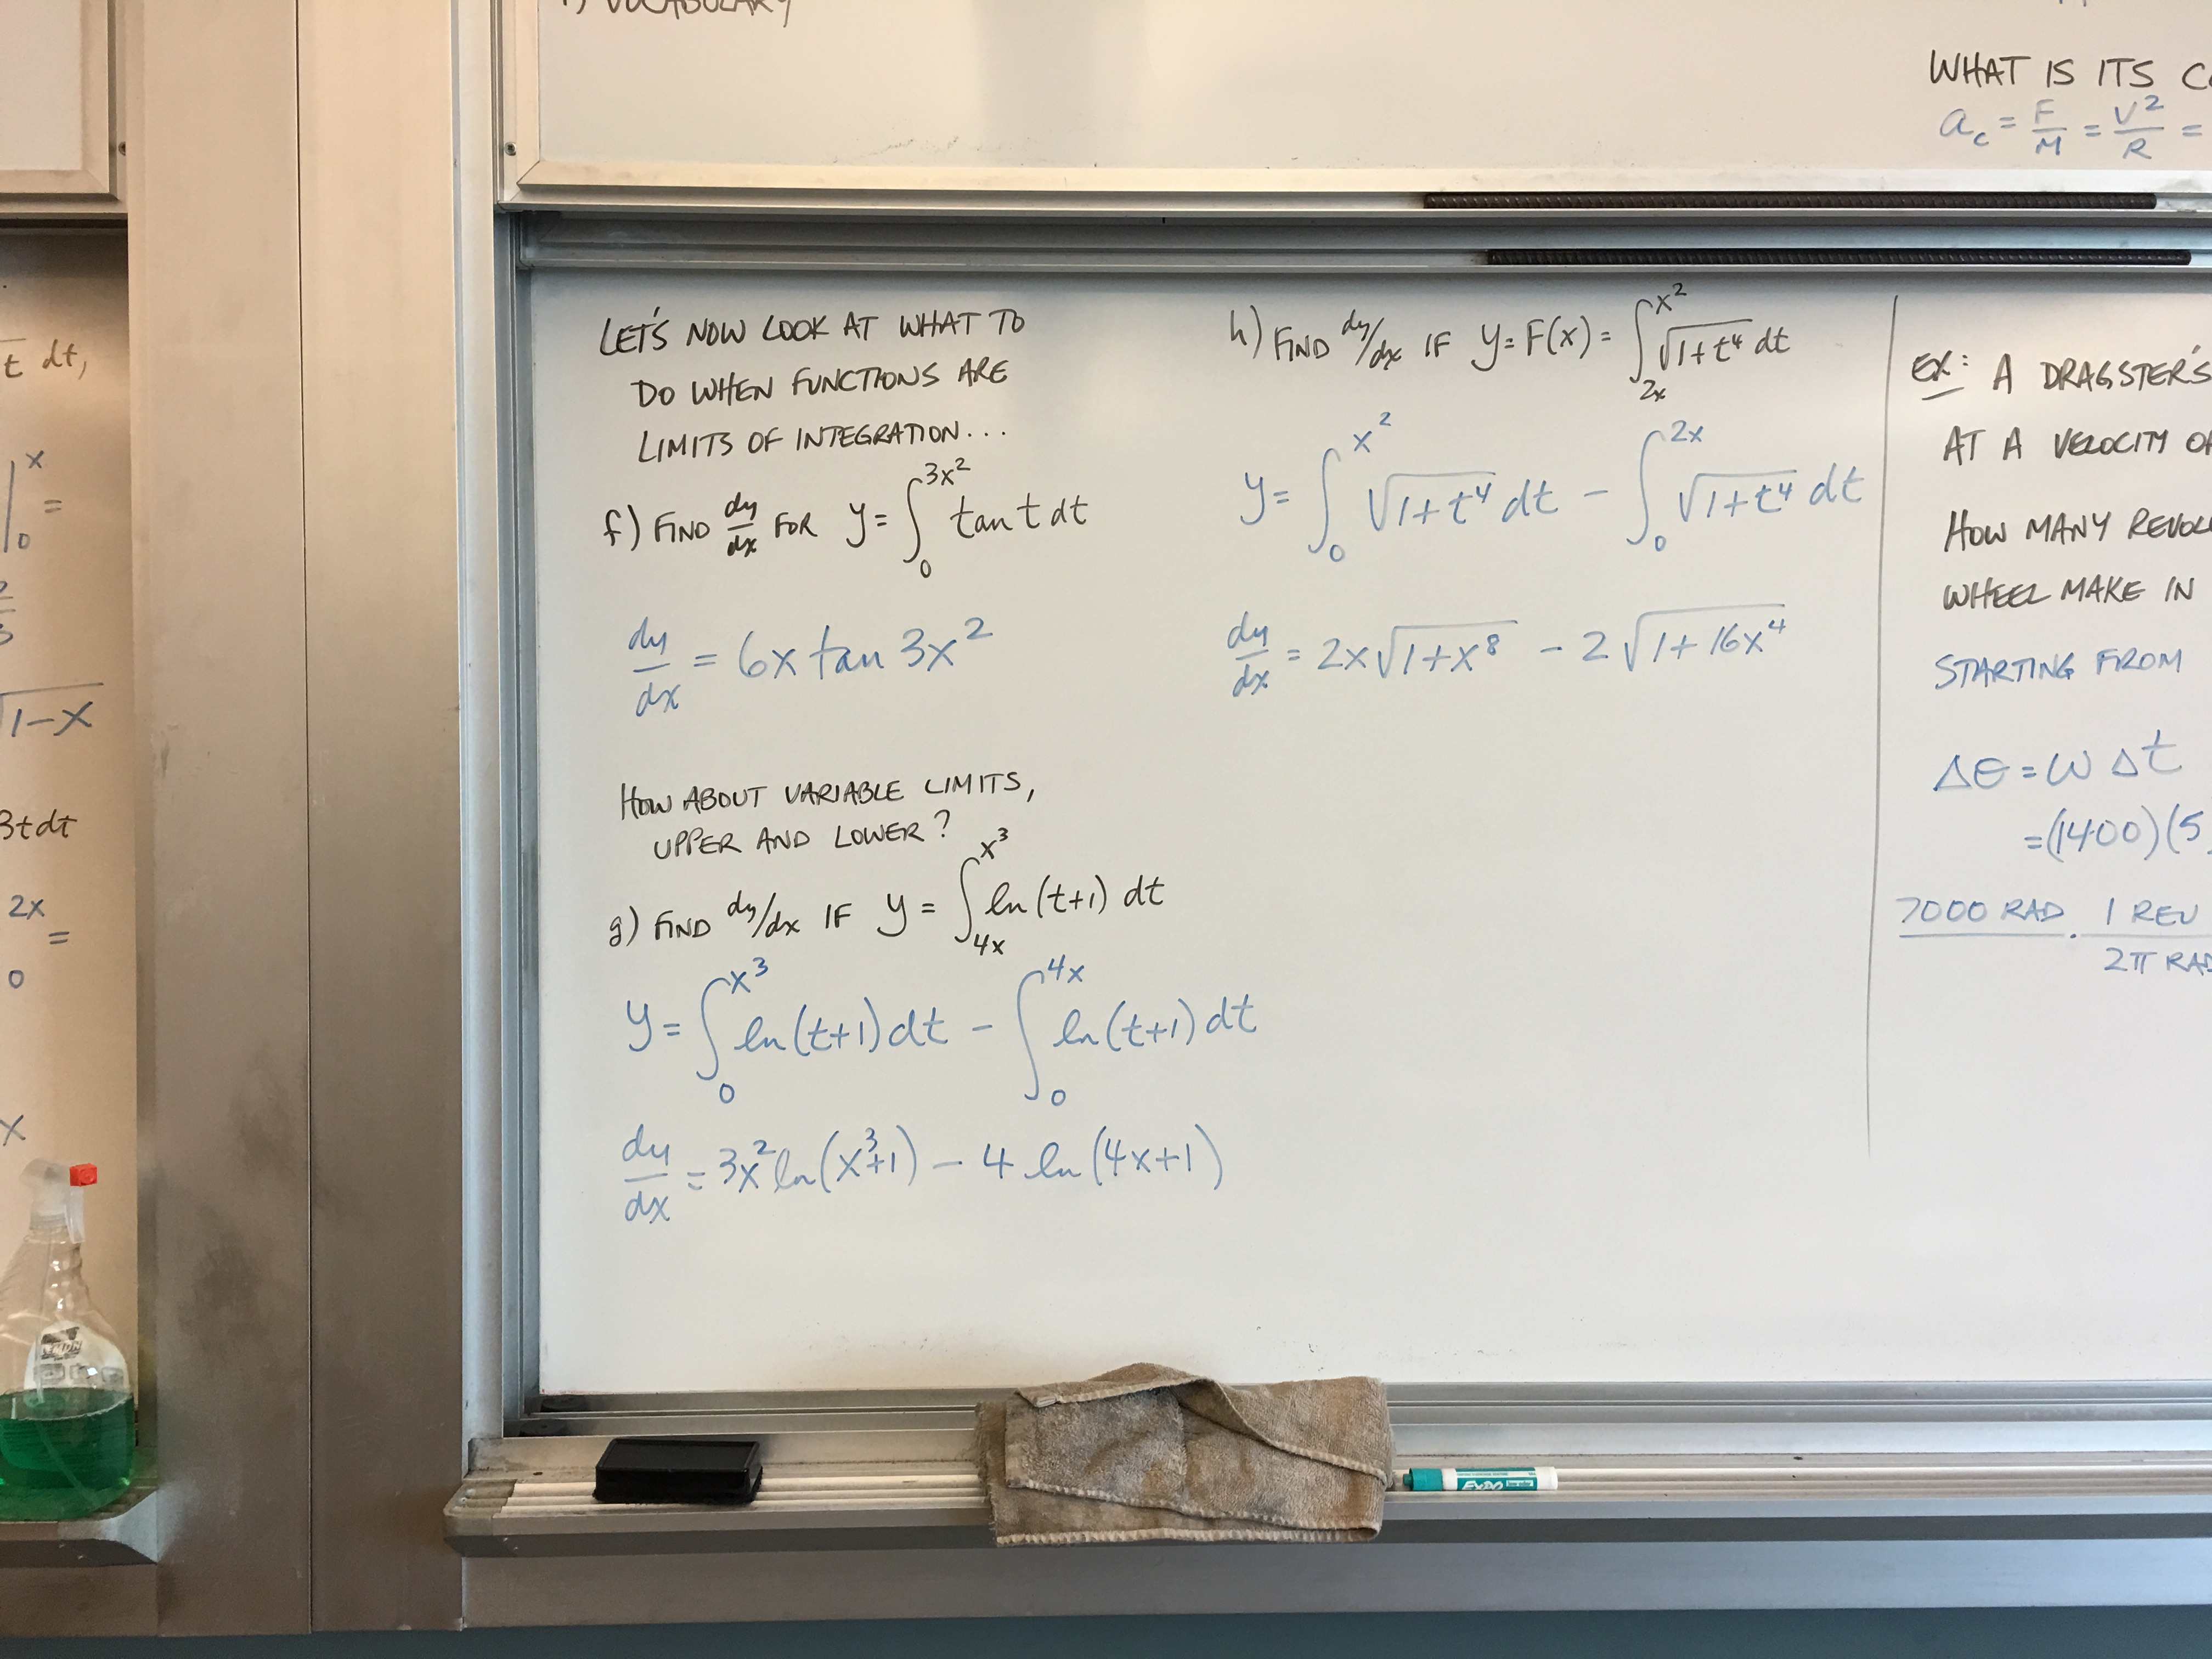 VOCABULARY
WHAT IS ITS
a_c = F/M = V²/R =
t dt,
|₀ˣ =
√1-X
3t dt
2x
=
0
X
LET'S NOW LOOK AT WHAT TO
DO WHEN FUNCTIONS ARE
LIMITS OF INTEGRATION...
f) FIND dy/dx FOR y = ∫₀^(3x²) tan t dt
dy/dx = 6x tan 3x²
HOW ABOUT VARIABLE LIMITS,
UPPER AND LOWER?
g) FIND dy/dx IF y = ∫_(4x)^(x³) ln(t+1) dt
y = ∫₀^(x³) ln(t+1) dt - ∫₀^(4x) ln(t+1) dt
dy/dx = 3x² ln(x³+1) - 4 ln(4x+1)
h) FIND dy/dx IF y = F(x) = ∫_(2x)^(x²) √(1+t⁴) dt
y = ∫₀^(x²) √(1+t⁴) dt - ∫₀^(2x) √(1+t⁴) dt
dy/dx = 2x√(1+x⁸) - 2√(1+16x⁴)
EX: A DRAGSTER'S
AT A VELOCITY
HOW MANY
WHEEL MAKE IN
STARTING FROM
Δθ = ω Δt
= (1400)(5
7000 RAD · 1 REV / 2π RAD
EXPO